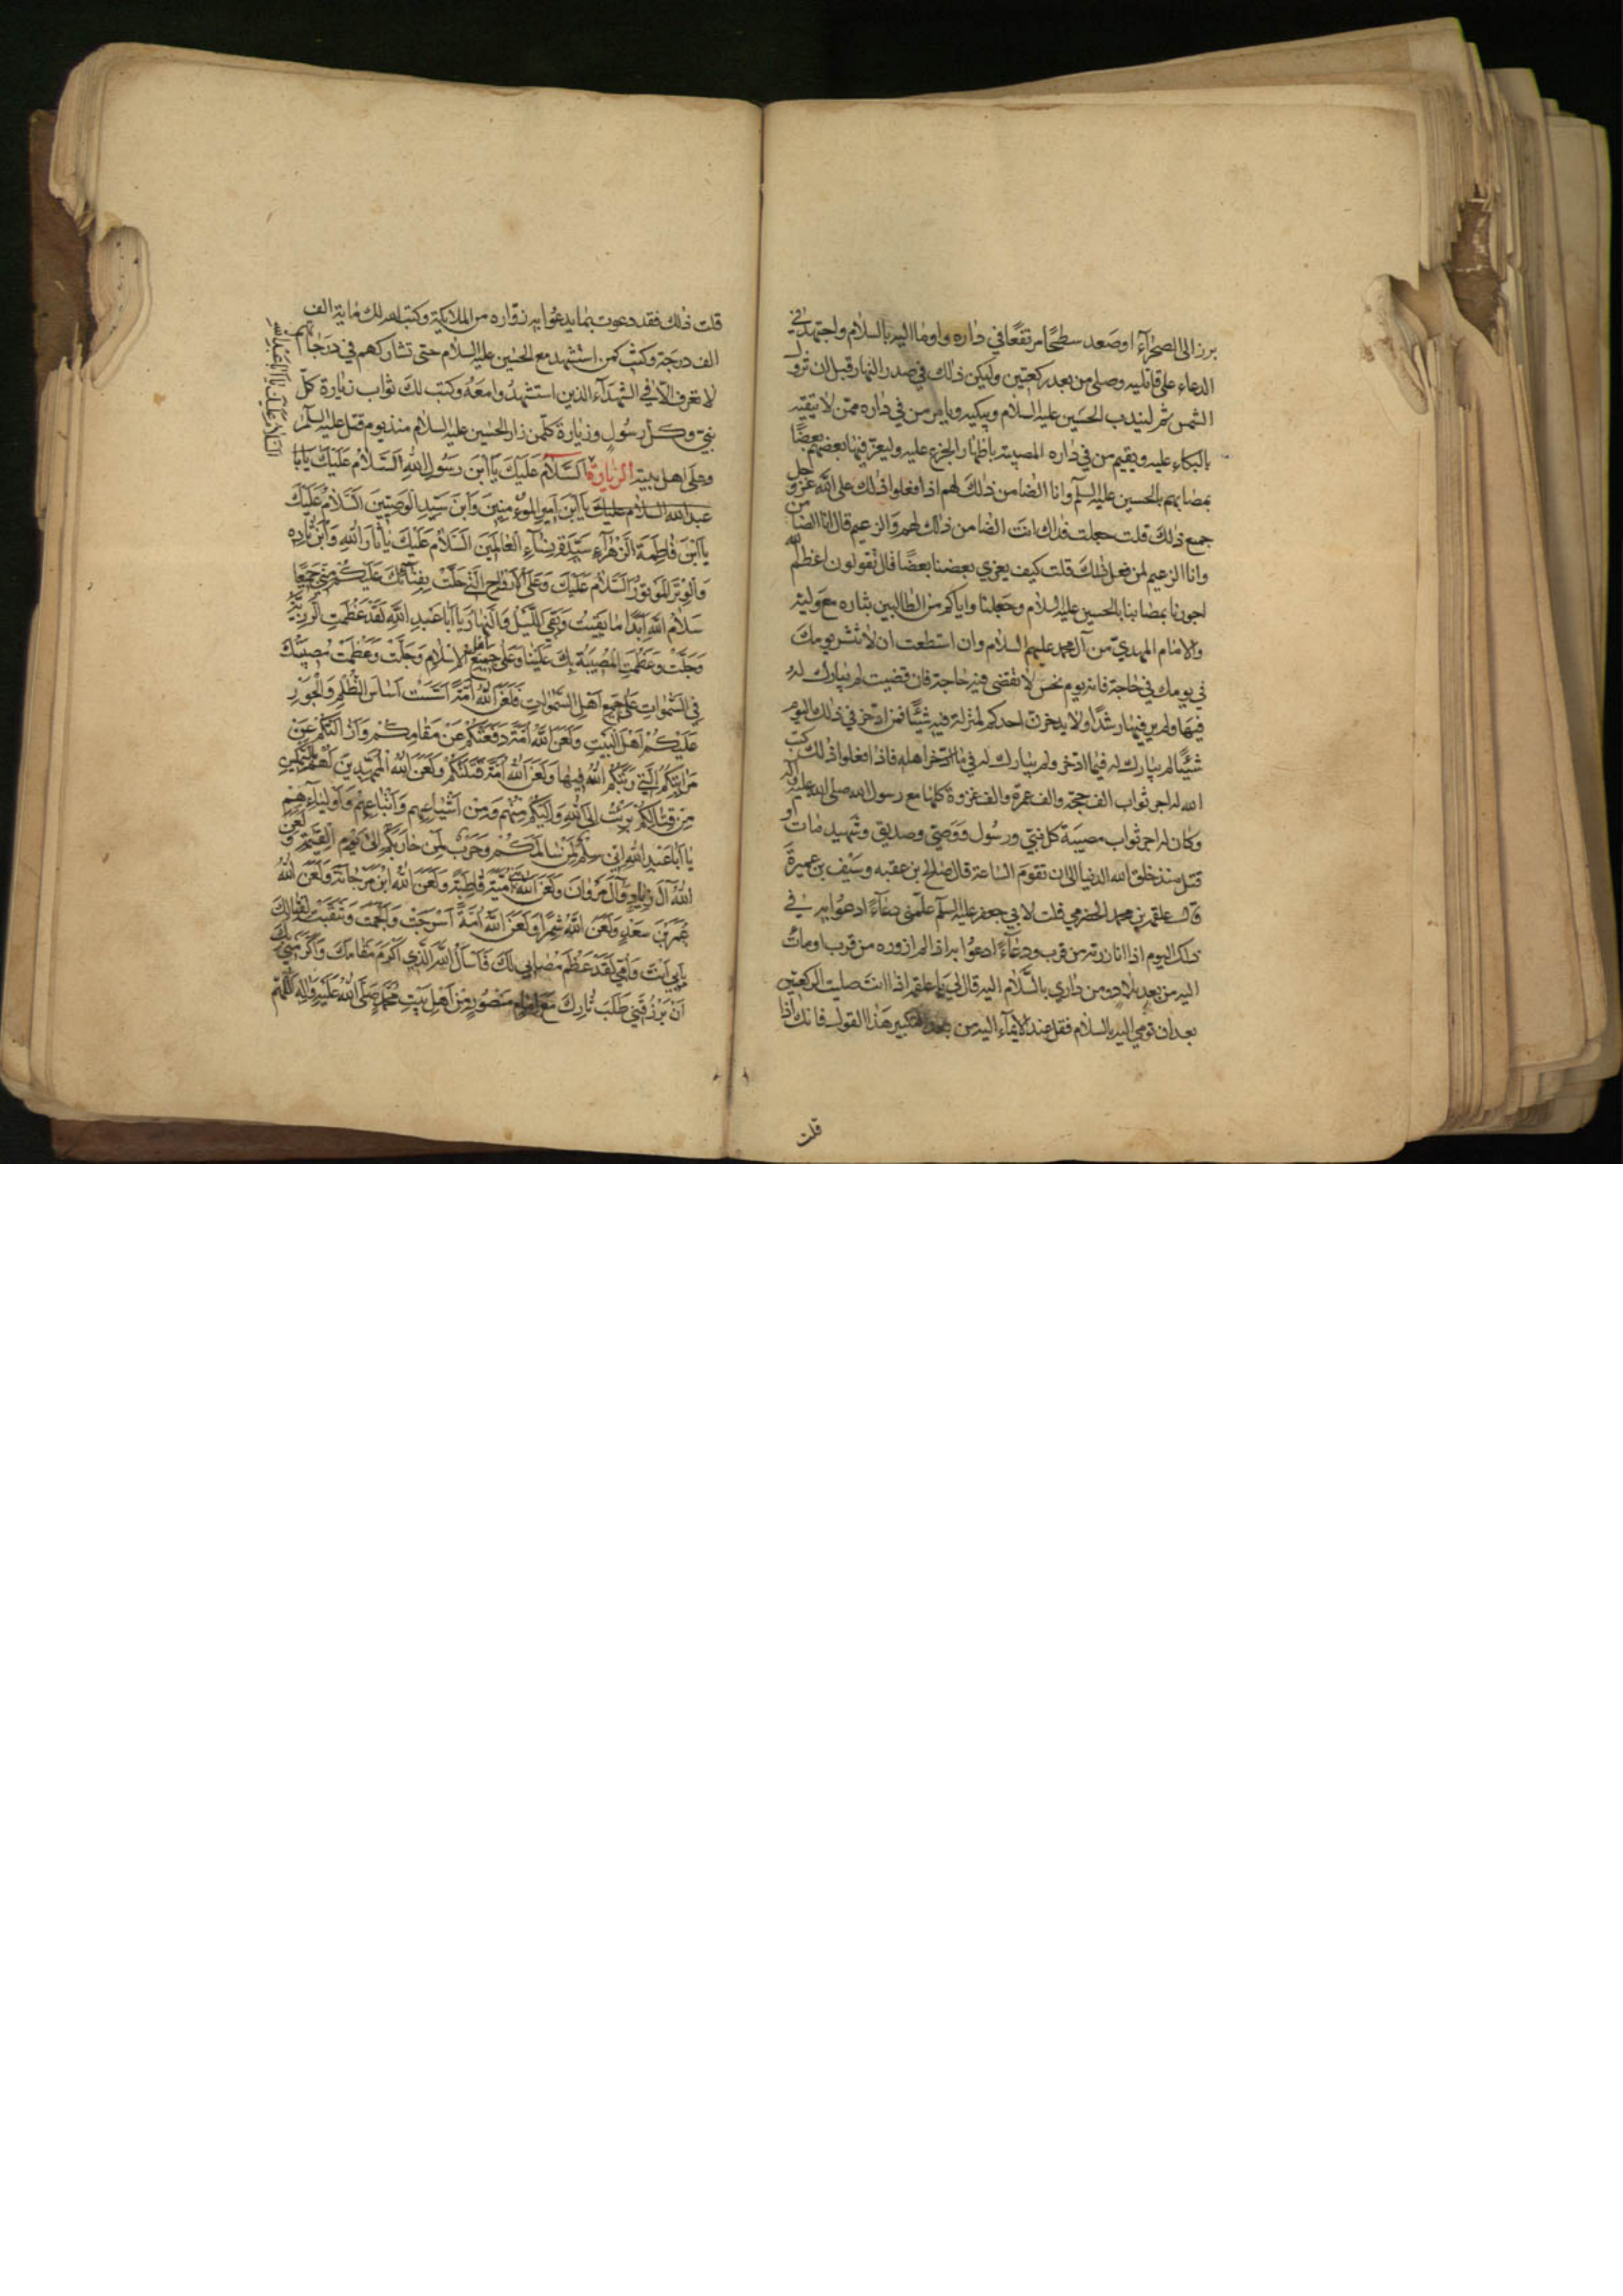 برز الى الصحراء او صعد سطحًا مرتفعًا في داره واوما اليه بالسلام واجتهد في
الدعاء على قاتليه وصلى من بعد ركعتين وليكن ذلك في صدر النهار قبل ان تزول
الشمس ثم ليندب الحسين عليه السلام ويبكيه ويامر من في داره ممن لا يتقيه
بالبكاء عليه ويقيم من في داره المصيبة باظهار الجزع عليه وليعز فيها بعضهم بعضًا
بمصابهم بالحسين عليه السلم وانا الضامن ذلك لهم اذا فعلوا ذلك على الله عز وجل
جميع ذلك قلت جعلت فداك انت الضامن ذلك لهم والزعيم قال انا الضامن
وانا الزعيم لمن فعل ذلك قلت كيف يعزي بعضنا بعضًا قال تقولون اعظم الله
اجورنا بمصابنا بالحسين عليه السلام وجعلنا واياكم من الطالبين بثاره مع وليه
والامام المهدي من آل محمد عليهم السلام وان استطعت ان لا تنشر يومك
في يومك في حاجة فانه يوم نحس لا تقضى فيه حاجة فان قضيت لم يبارك له
فيها ولم ير فيها رشدًا ولا يدخرن احدكم لمنزله فيه شيئًا فمن ادخر في ذلك اليوم
شيئًا لم يبارك له فيما ادخر ولم يبارك له في ما ادخر اهله فاذا فعلوا ذلك كتب
الله له اجر ثواب الف حجة والف عمرة والف غزوة كلها مع رسول الله صلى الله عليه وآله
وكان له اجر ثواب مصيبة كل نبي ورسول ووصي وصديق وشهيد مات او
قتل منذ خلق الله الدنيا الى ان تقوم الساعة قال صالح بن عقبه وسيف بن عميرة
قال علقمه بن محمد الحضرمي قلت لابي جعفر عليه السلم علمني دعاءً ادعوا به في
ذلك اليوم اذا انا زرته من قرب ودعاءً ادعوا به اذا لم ازوره من قرب اومات
اليه من بعد بلاد ومن داري بالسلام اليه قال لي يا علقمه اذا انت صليت الركعتين
بعد ان تومي اليه بالسلام فقل عند الايماء اليه من بعد التكبير هذا القول فانك اذا
قلت
قلت ذلك فقد دعوت بما يدعوا به زواره من الملايكة وكتب الله لك ماية الف
الف درجة وكنت كمن استشهد مع الحسين عليه السلام حتى تشاركهم في درجاتهم
لا تعرف الا في الشهداء الذين استشهدوا معه وكتب لك ثواب زيارة كل
نبي وكل رسول وزيارة كل من زار الحسين عليه السلام منذ يوم قتل عليه السلم
وعلى اهل بيته الزيارة السلام عليك يا ابن رسول الله السلام عليك يا ابا
عبد الله السلام عليك يا ابن امير المؤمنين وابن سيد الوصيين السلام عليك
يا ابن فاطمة الزهراء سيدة نساء العالمين السلام عليك يا ثار الله وابن ثاره
والوتر الموتور السلام عليك وعلى الارواح التي حلت بفنائك عليكم مني جميعًا
سلام الله ابدًا ما بقيت وبقي الليل والنهار يا ابا عبد الله لقد عظمت الرزية
وجلت وعظمت المصيبة بك علينا وعلى جميع اهل الاسلام وجلت وعظمت مصيبتك
في السموات على جميع اهل السموات فلعن الله امة اسست اساس الظلم والجور
عليكم اهل البيت ولعن الله امة دفعتكم عن مقامكم وازالتكم عن
مراتبكم التي رتبكم الله فيها ولعن الله امة قتلتكم ولعن الله الممهدين لهم بالتمكين
من قتالكم برئت الى الله واليكم منهم ومن اشياعهم واتباعهم واوليائهم
يا ابا عبد الله اني سلم لمن سالمكم وحرب لمن حاربكم الى يوم القيمة ولعن
الله آل زياد وآل مروان ولعن الله بني امية قاطبة ولعن الله ابن مرجانة ولعن الله
عمر بن سعد ولعن الله شمرًا ولعن الله امة اسرجت والجمت وتنقبت لقتالك
بابي انت وامي لقد عظم مصابي بك فاسأل الله الذي اكرم مقامك واكرمني بك
ان يرزقني طلب ثارك مع امام منصور من اهل بيت محمد صلى الله عليه واله اللهم
السلام عليك يا ابا عبد الله